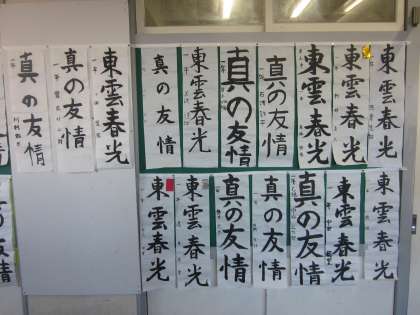 東雲春光
東雲春光
東雲春光
真の友情
真の友情
東雲春光
真の友情
東雲春光
真の友情
真の友情
東雲春光
東雲春光
真の友情
真の友情
真の友情
東雲春光
東雲春光